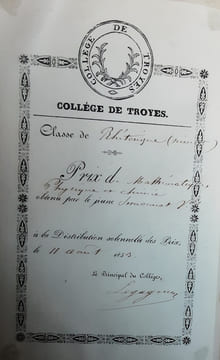 COLLÈGE DE TROYES
COLLÉGE DE TROYES.
Classe de Rhétorique
Prix d. Mathématiques
Physique et Chimie
obtenu par le jeune
à la Distribution solennelle des Prix,
le 11 août 1853
Le Principal du Collège,